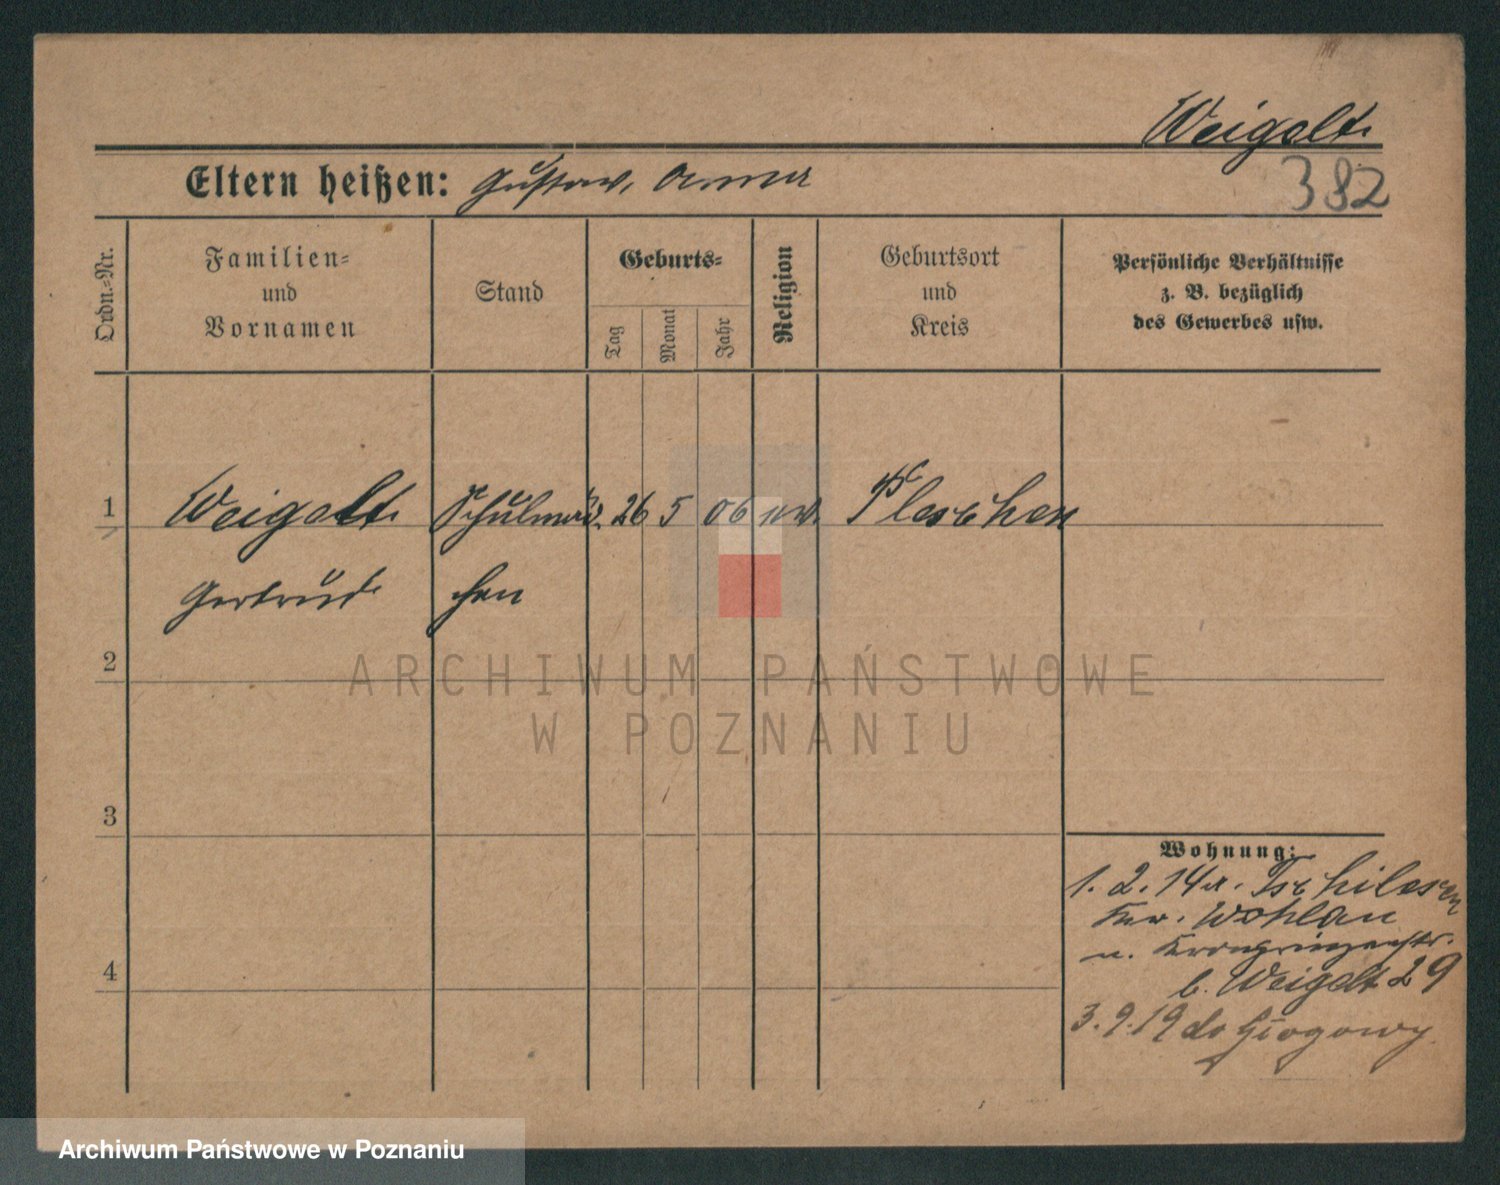 Weigelt.
Eltern heißen: Gustav, Anna
382
Ordn.-Nr.
Familien-
und
Vornamen
Stand
Geburts-
Tag
Monat
Jahr
Religion
Geburtsort
und
Kreis
Persönliche Verhältnisse
z. B. bezüglich
des Gewerbes usw.
1 Weigelt. Schulmäd. 26 5 06 ev. Pleschen
Gertrud chen
2
ARCHIWUM PAŃSTWOWE
W POZNANIU
3
Wohnung:
1. 2. 14 a. Tschilesen
Wohlau
n. Kronprinzenstr.
b. Weigelt 29
4
3. 9. 19 do Głogowy
Archiwum Państwowe w Poznaniu